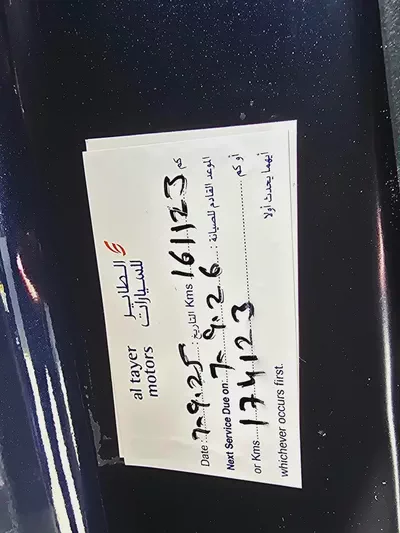 al tayer
motors
الطاير
للسيارات
Date : 7-9.25 التاريخ Kms 161123 كم
Next Service Due on 7-9.26 : الموعد القادم للصيانة
or Kms 174123 أو كم
whichever occurs first. أيهما يحدث أولا